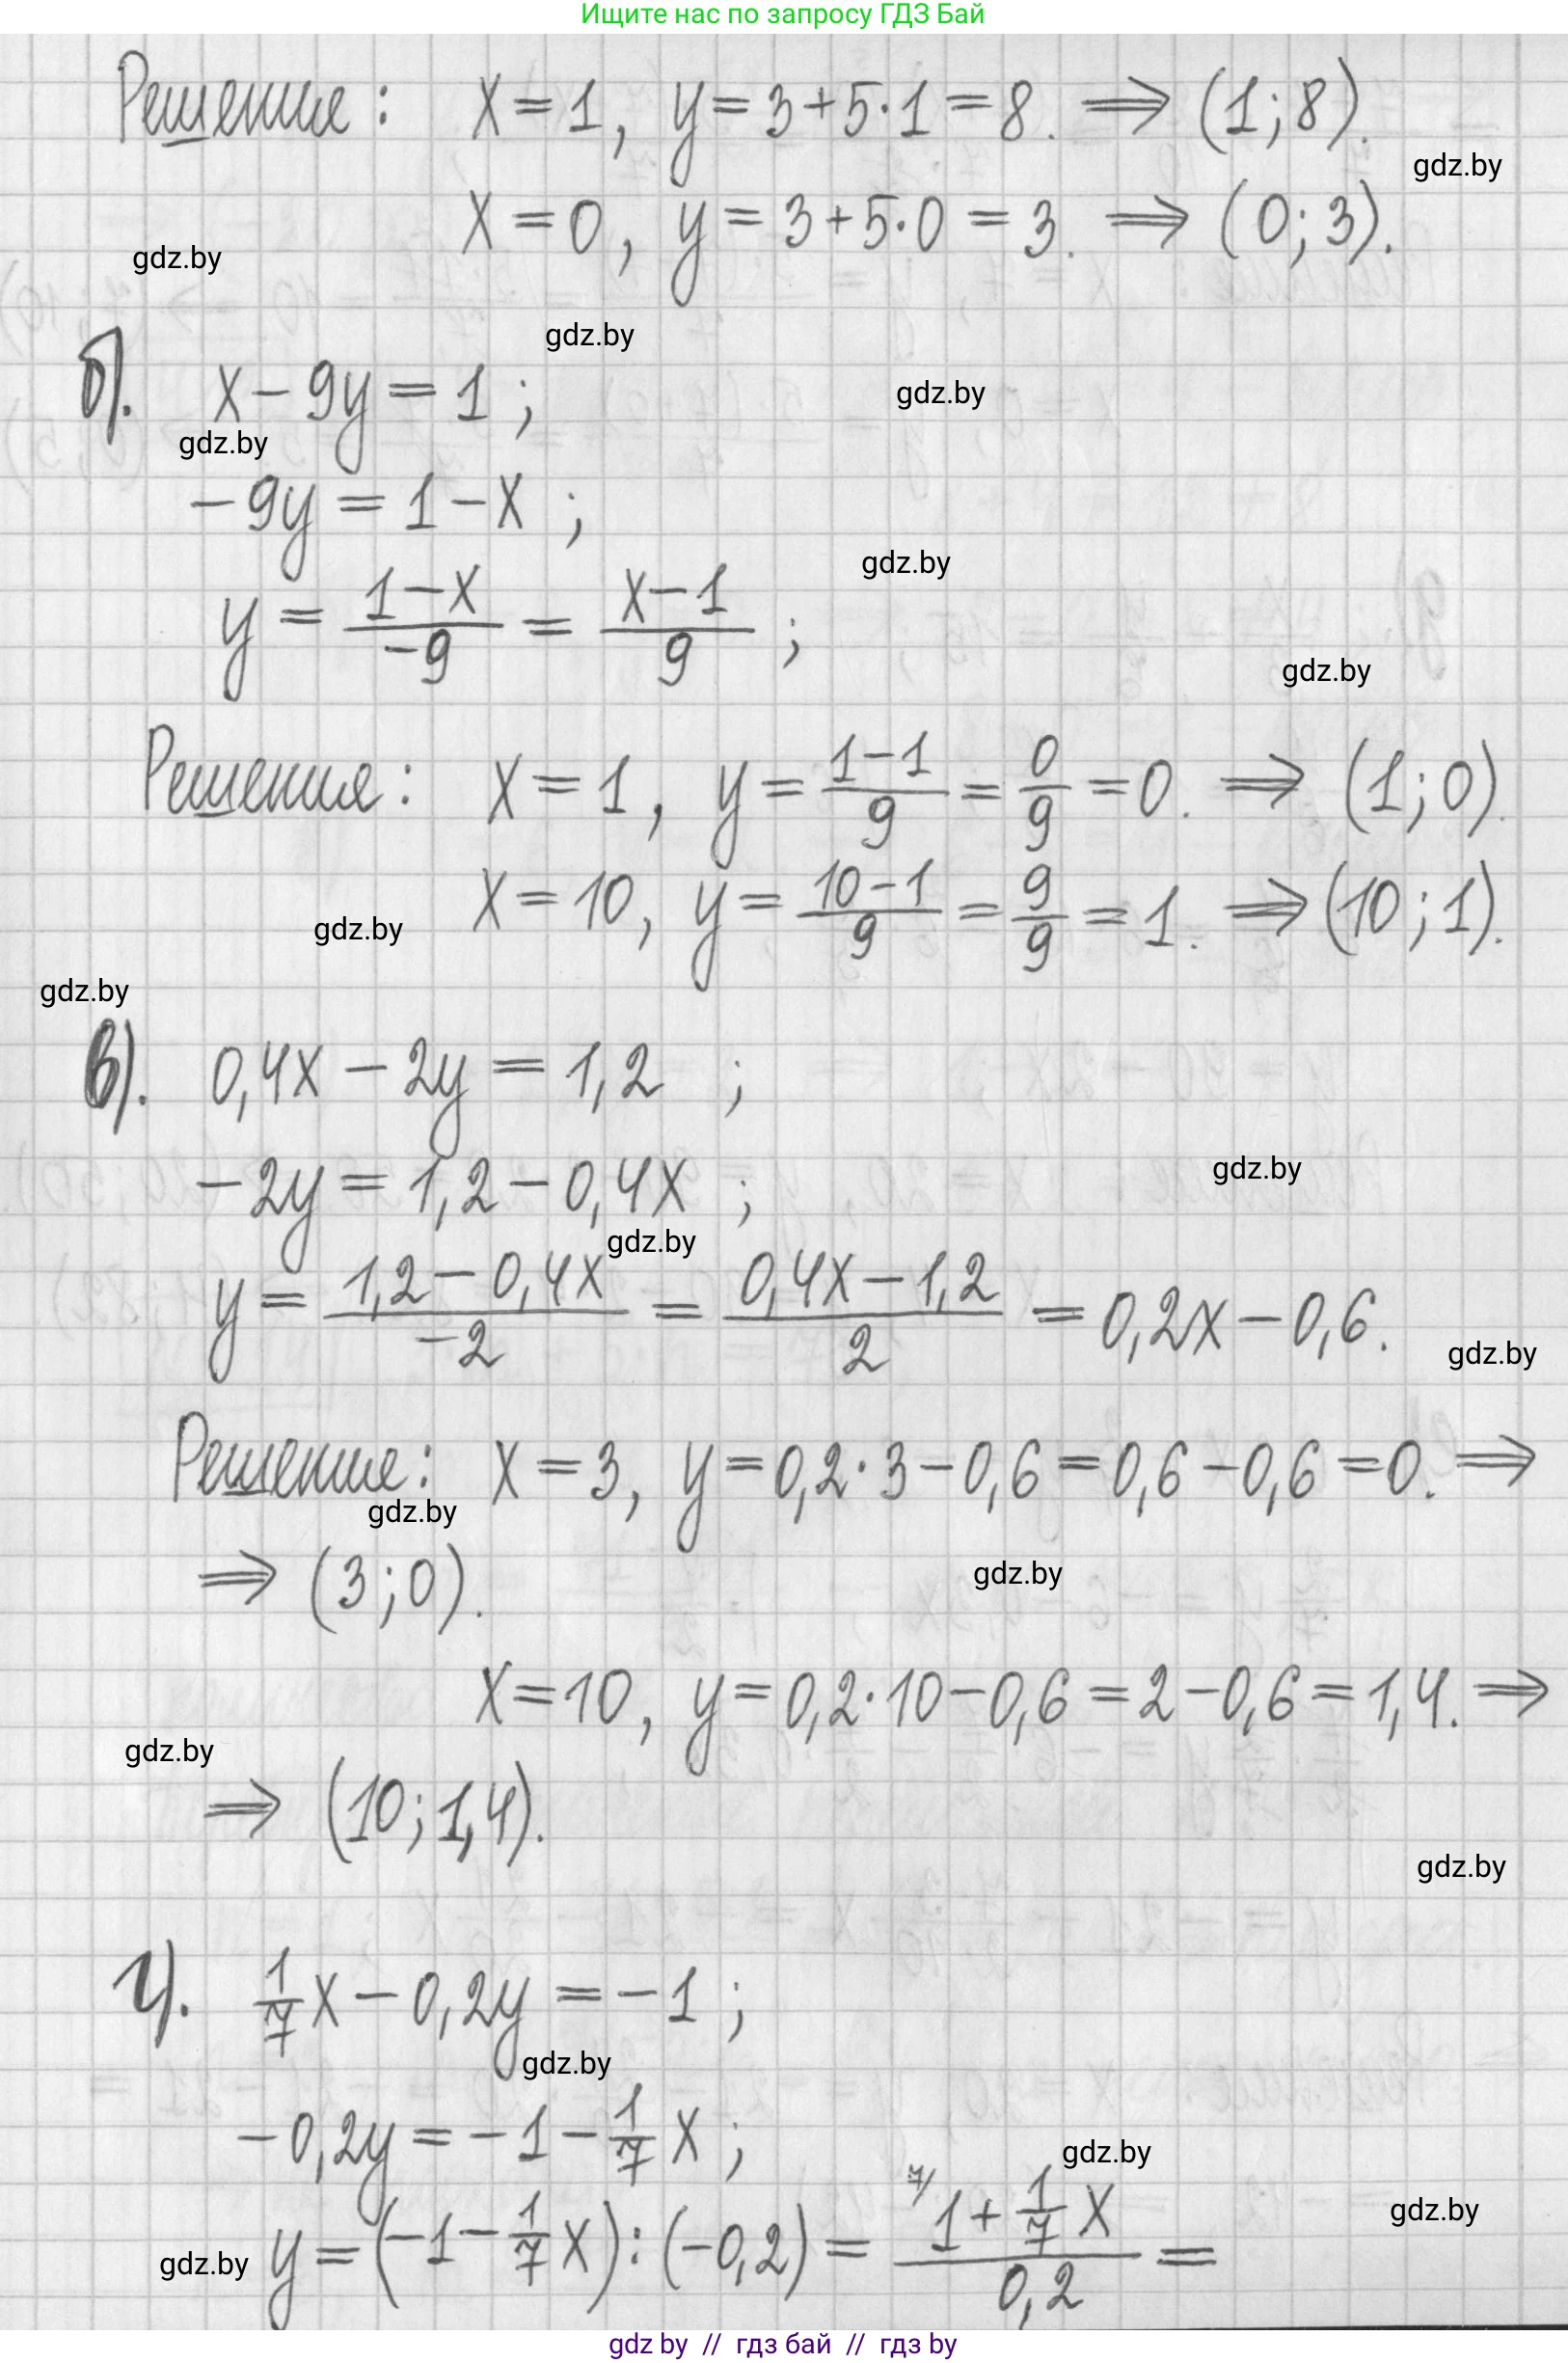 Ищите нас по запросу ГДЗ Бай
Решение: x = 1, y = 3+5·1 = 8. ⇒ (1; 8).
gdz.by
x = 0, y = 3+5·0 = 3. ⇒ (0; 3).
gdz.by
gdz.by
б). x − 9y = 1 ;
gdz.by
gdz.by
−9y = 1 − x ;
gdz.by
y = (1−x)/(−9) = (x−1)/9 ;
gdz.by
Решения: x = 1, y = (1−1)/9 = 0/9 = 0. ⇒ (1; 0).
x = 10, y = (10−1)/9 = 9/9 = 1. ⇒ (10; 1).
gdz.by
gdz.by
в). 0,4x − 2y = 1,2 ;
−2y = 1,2 − 0,4x ;
gdz.by
gdz.by
y = (1,2 − 0,4x)/(−2) = (0,4x − 1,2)/2 = 0,2x − 0,6.
gdz.by
Решение: x = 3, y = 0,2·3 − 0,6 = 0,6 − 0,6 = 0. ⇒
gdz.by
⇒ (3; 0).
gdz.by
x = 10, y = 0,2·10 − 0,6 = 2 − 0,6 = 1,4. ⇒
gdz.by
⇒ (10; 1,4).
gdz.by
г). 1/7 x − 0,2y = −1 ;
gdz.by
−0,2y = −1 − 1/7 x ;
gdz.by
gdz.by
y = (−1 − 1/7 x) : (−0,2) = (⁷⁄1 + 1/7 x)/0,2 =
gdz.by
gdz by // гдз бай // гдз by